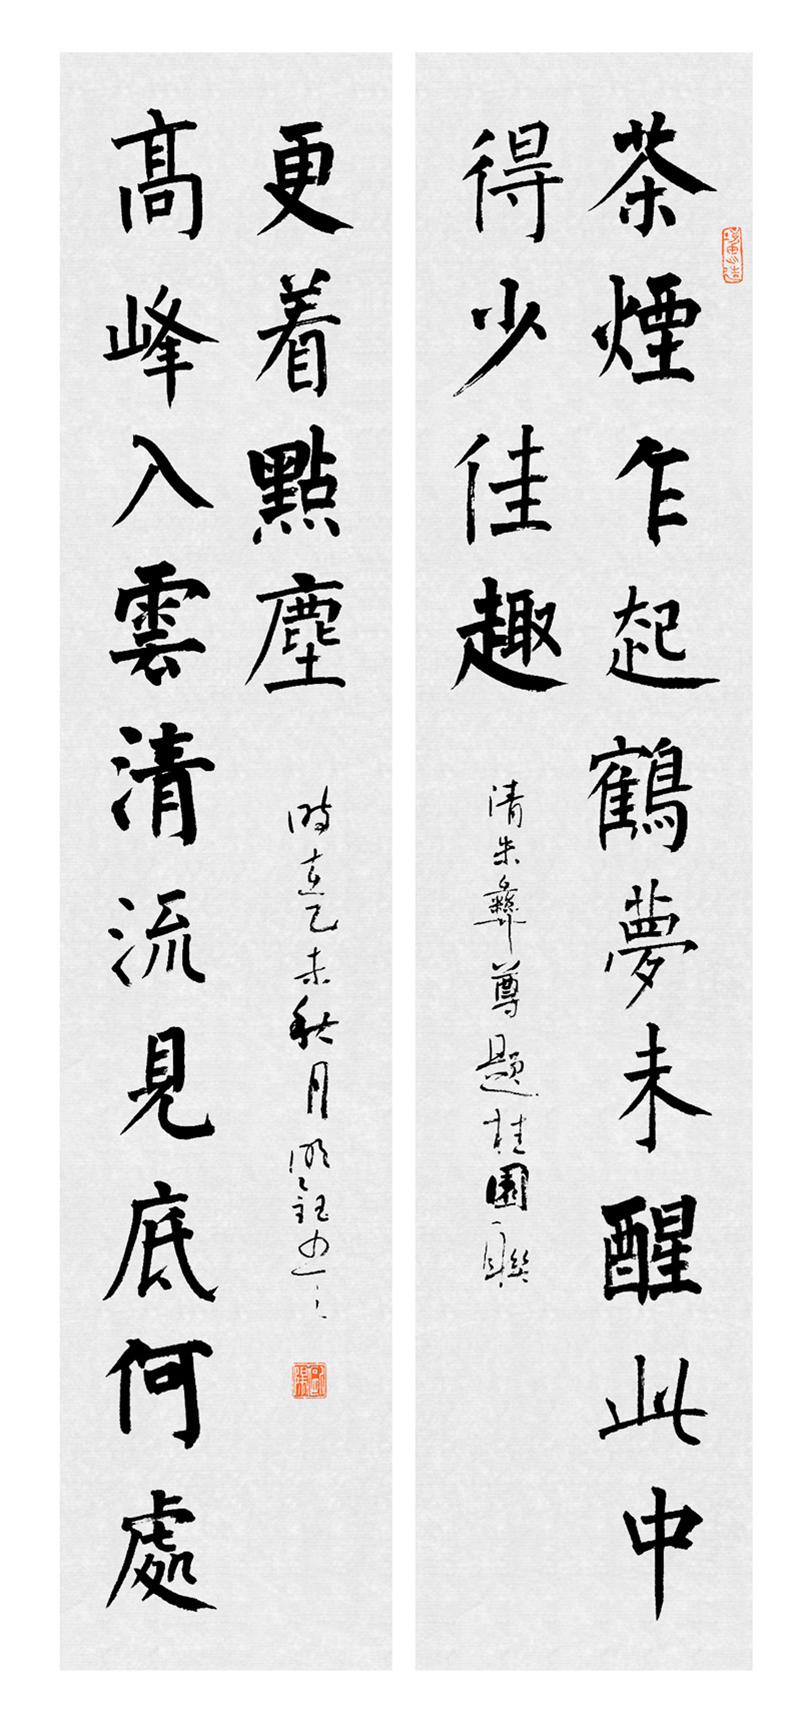 茶煙乍起鶴夢未醒此中
得少佳趣
清朱彝尊題桂園聯
高峰入雲清流見底何處
更着點塵
時在乙未秋月